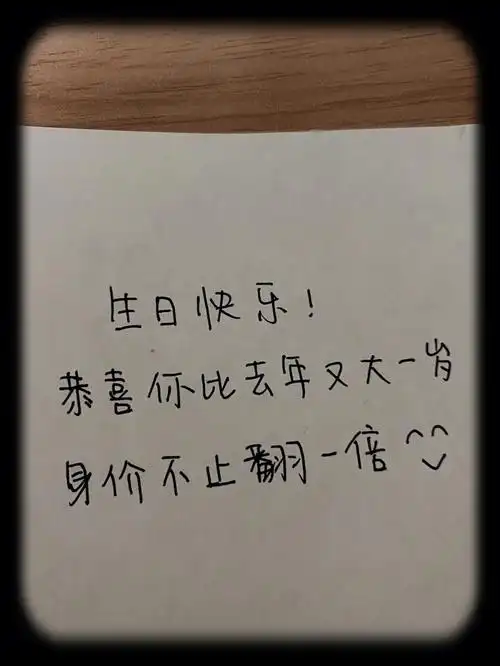 生日快乐!
恭喜你比去年又大一岁
身价不止翻一倍^^